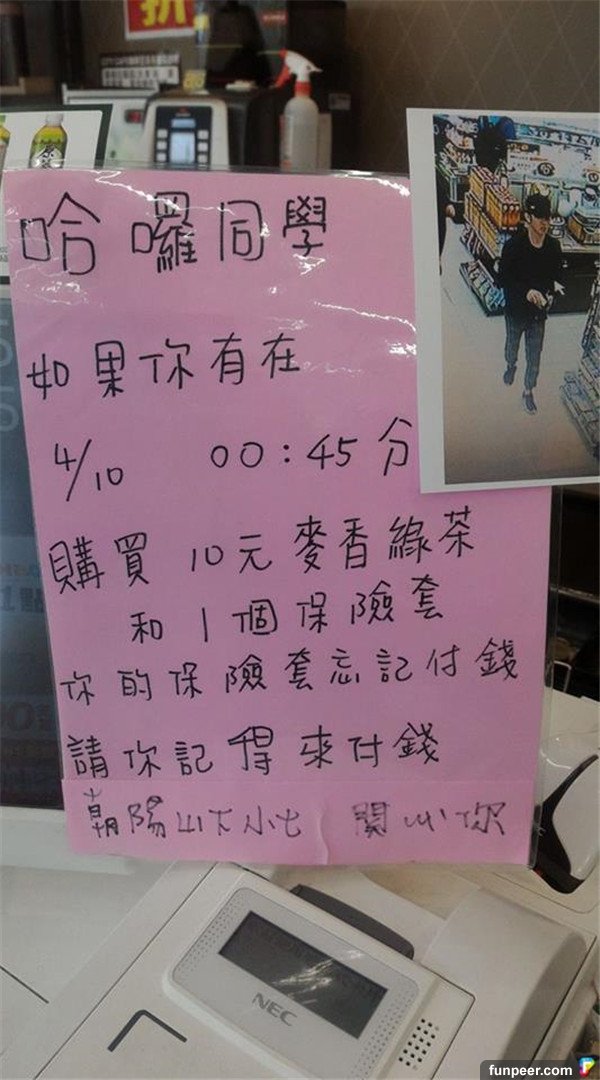 折
茶
哈囉同學
如果你有在
4/10 00:45分
購買 10元麥香綠茶
和 1個保險套
你的保險套忘記付錢
請你記得來付錢
朝陽山下小七 關心你
NEC
funpeer.com